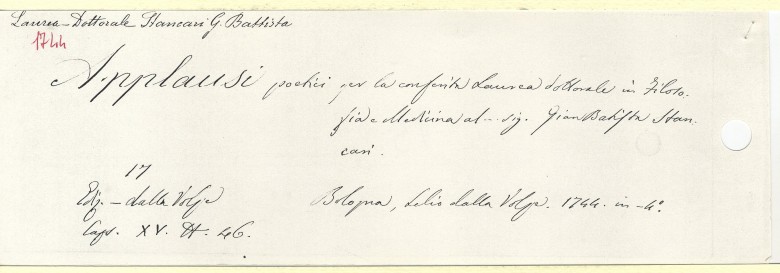 Laurea-Dottorale Stancari G. Battista
1744
Applausi poetici per la conferita Laurea dottorale in Filoso-
fia e Medicina al... sig. Gian Batista Stan-
cari.
17
Ediz. - dalla Volpe
Bologna, Lelio dalla Volpe. 1744. in-4º.
Caps. XV. N. 46.